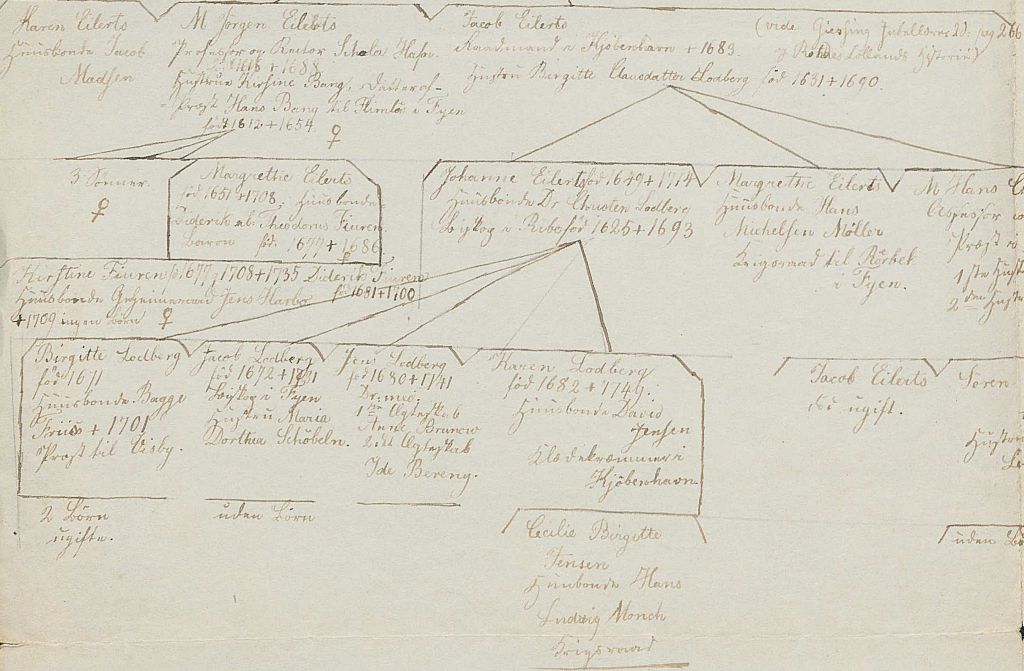 Karen Eilerts
Huusbonde Jacob
Madsen
M Jørgen Eilerts
Professor og Rector Schola Hafn.
1618 + 1688
Hustrue Kirsine Bang, Datter af
Præst Hans Bang til Himlös i Fyen
født 1612 + 1654.
♀
Jacob Eilerts
Raadmand i Kjöbenhavn + 1683.
Hustru Birgitte Clausdatter Lodberg föd 1631 + 1690.
(vide Giessing Jubellærere D. pag 266
og Rohdes Lollands Historie)
3 Sönner.
♀
Margrethe Eilerts
föd 1651 + 1708, Huusbonde
Diderik ab. Theodorus Fiuren
Baron föd. 1677 + 1686
Johanne Eilerts föd 1649 + 1714
Huusbonde Dr Christen Lodberg
Biskop i Ribe föd 1625 + 1693
Margrethe Eilerts
Huusbonde Hans
Michelsen Møller
Krigsraad til Rörbek
i Fyen.
M Hans
Assessor
Præst
1ste Hust
2den Hustr
Kirstine Fiuren f 1677 g 1708 + 1735
Huusbonde Geheimeraad Jens Harboe
+ 1709 ingen Börn ♀
Diderik Fiuren
föd 1681 + 1700
Birgitte Lodberg
föd 1671
Huusbonde Bagge
Friis + 1701
Præst til Visby.
Jacob Lodberg
föd 1672 + 1731
Biskop i Fyen
Hustru Maria
Dorthea Schöbeln.
Jens Lodberg
föd 1680 + 1741
Dr. med.
1ste Ægteskab
Anne Brancio
2det Ægteskab
Ide Bereng.
Karen Lodberg
föd 1682 + 1749.
Huusbonde David
Jensen
Klædekræmmer i
Kjöbenhavn.
Jacob Eilerts
död ugift.
Sören
Hustru
2 Börn
ugifte.
uden Börn
Cecilie Birgitte
Jensen
Huusbonde Hans
Ludvig Monch
Krigsraad
uden